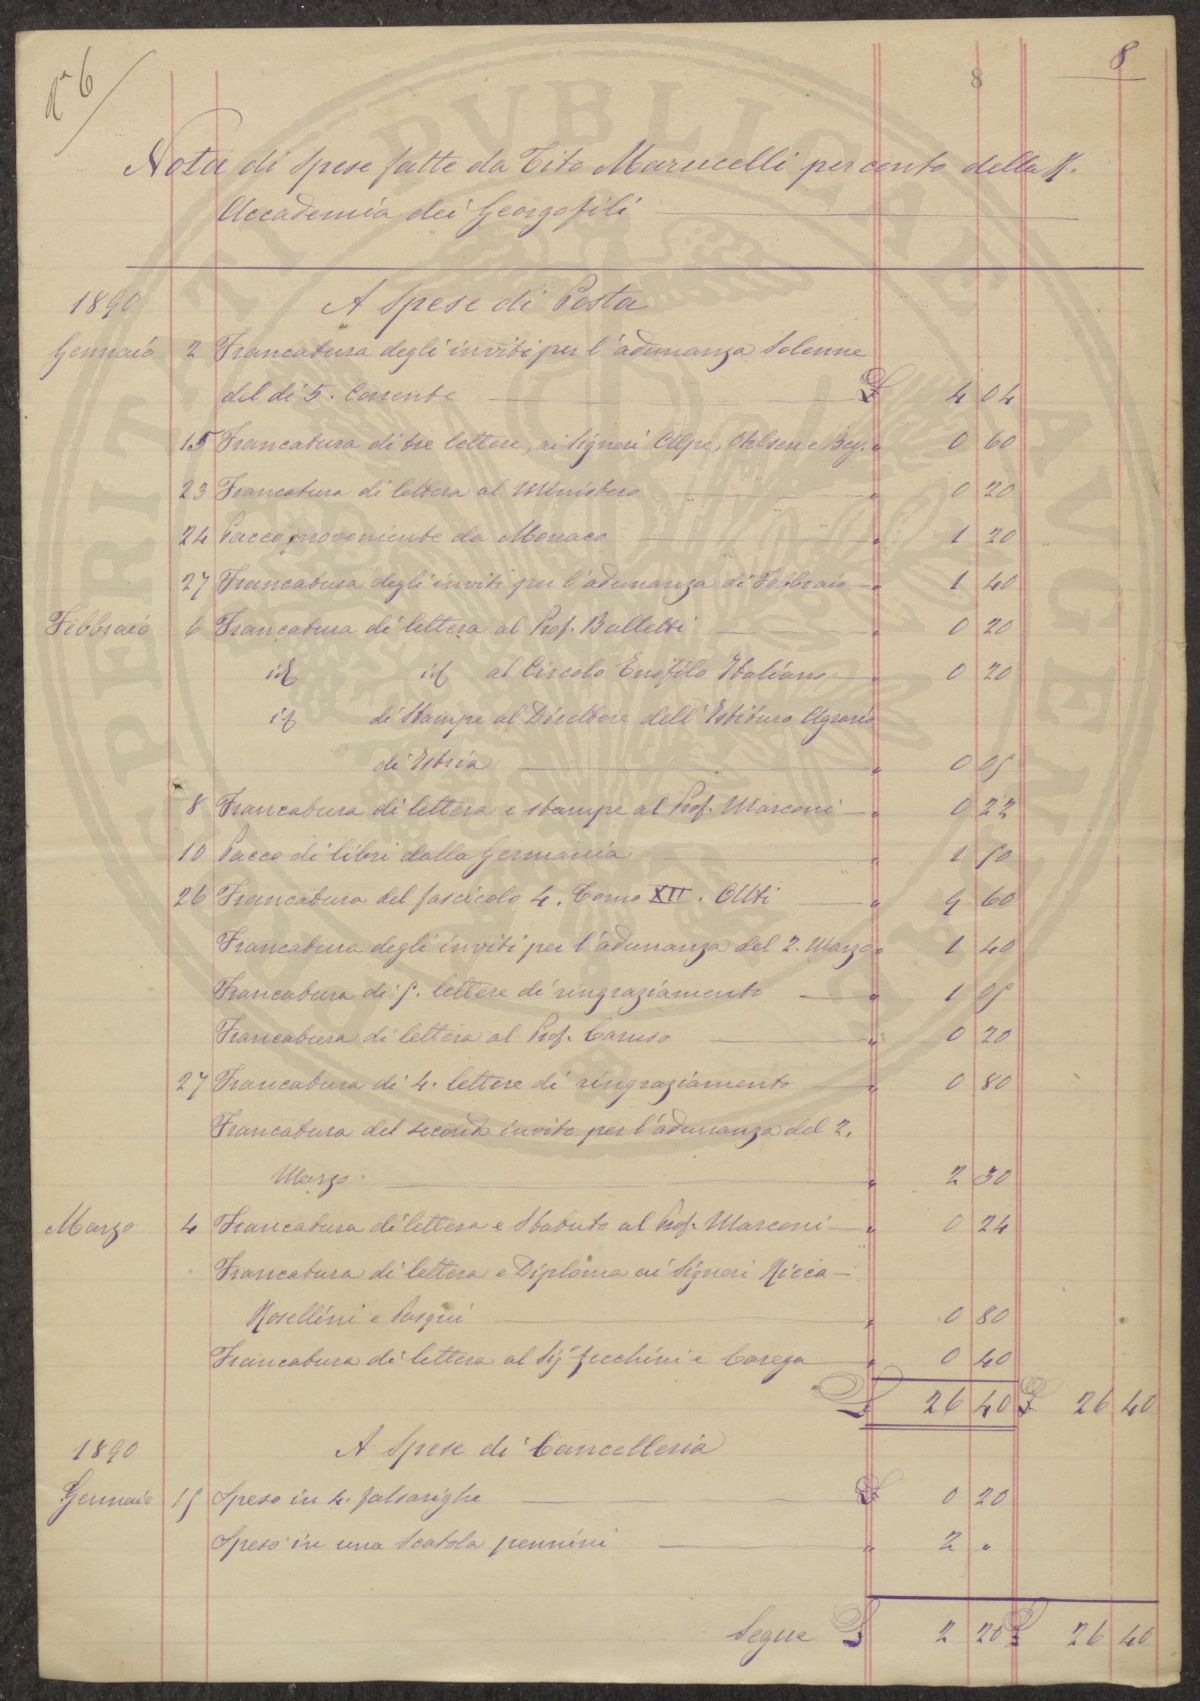 N° 6
8
8
Nota di Spese fatte da Tito Marucelli per conto della R.
Accademia dei Georgofili
1890 A Spese di Posta
Gennaio 2 Francatura degli inviti per l'adunanza Solenne
del dì 5. Corrente £ 4 04
15 Francatura di tre lettere, ai Signori Alpe, Ohlsen e Bey. " 0 60
23 Francatura di lettera al Ministero " 0 20
24 Pacco proveniente da Monaco " 1 20
27 Francatura degli inviti per l'adunanza di Febbraio " 1 40
Febbraio 6 Francatura di lettera al Prof. Balletti " 0 20
id id al Circolo Enofilo Italiano " 0 20
id di Stampe al Direttore dell'Istituto Agrario
di Istria " 0 05
8 Francatura di lettera e stampe al Prof. Marconi " 0 22
10 Pacco di libri dalla Germania " 1 50
26 Francatura del fascicolo 4. Tomo XII. Atti " 9 60
Francatura degli inviti per l'adunanza del 2. Marzo " 1 40
Francatura di 5. lettere di ringraziamento " 1 05
Francatura di lettera al Prof. Caruso " 0 20
27 Francatura di 4. lettere di ringraziamento " 0 80
Francatura del secondo invito per l'adunanza del 2.
Marzo " 2 30
Marzo 4 Francatura di lettera e Statuto al Prof. Marconi " 0 24
Francatura di lettera e Diploma ai Signori Ricca-
Rosellini e Pasqui " 0 80
Francatura di lettera al Sig.i Zecchini e Carega " 0 40
£ 26 40 £ 26 40
1890 A Spese di Cancelleria
Gennaio 15 Speso in 4. falsarighe £ 0 20
Speso in una Scatola pennini " 2 "
Segue £ 2 20 £ 26 40